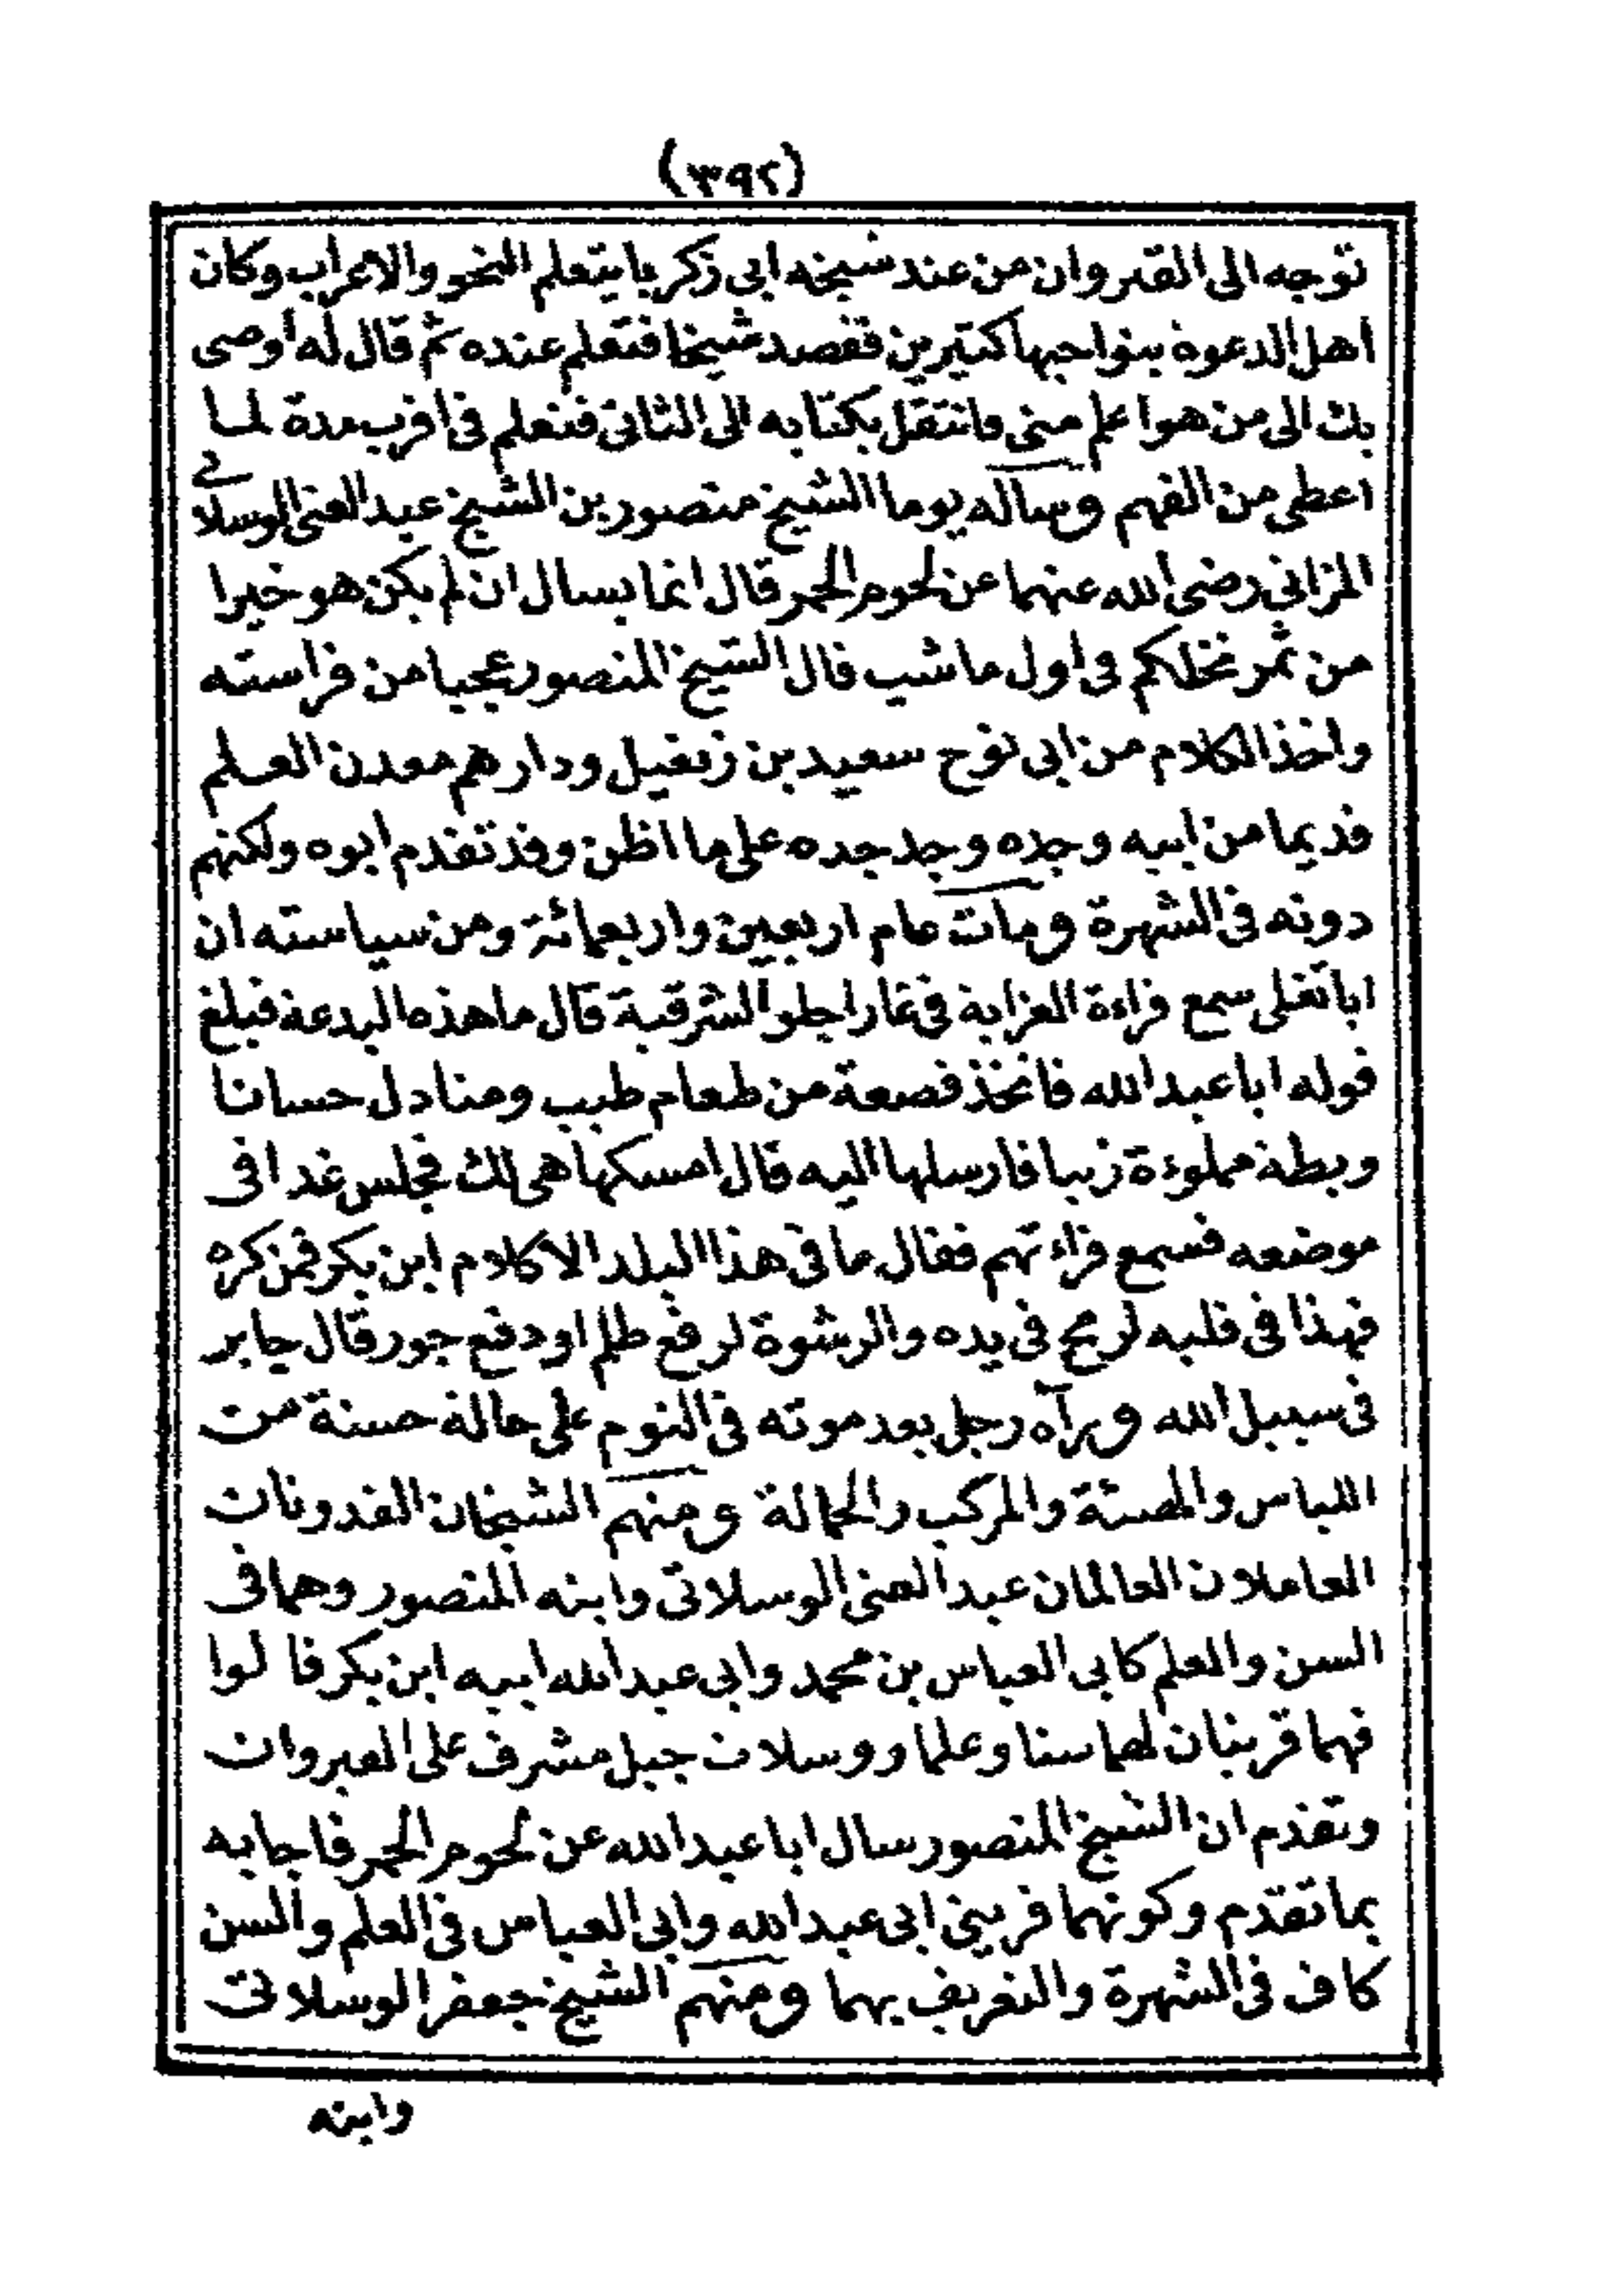 (٣٩٢)
توجه الى القيروان من عند شيخه ابى زكريا يتعلم النحو والاعراب وكان
اهل الدعوة بنواحيها كثيرين فقصد شيخا فتعلم عنده ثم قال له اوصى
بك الى من هو اعلم منى فانتقل بكتابه الى الثانى فتعلم فى اقرب مدة لما
اعطى من الفهم وساله يوما الشيخ منصور بن الشيخ عبد الغنى الوسلاتى
المزاتى رضى الله عنهما عن لحوم الحمر قال انما يسال ان لم يكن هو خيرا
من ثمر نخلكم فى اول ما شيب قال الشيخ المنصور عجبا من فراسته
واخذ الكلام من ابى نوح سعيد بن زنغيل ودارهم معدن العلم
قديما من ابيه وجده وجد جده على ما اظن وقد تقدم ابوه ولكنهم
دونه فى الشهرة ومات عام اربعين واربعمائة ومن سياسته ان
ابا تغلى سمع قراءة العزابة فى غار اجلو الشرقية قال ما هذه البدعة فبلغ
قوله ابا عبد الله فاتخذ قصعة من طعام طيب ومنادل حسانا
وبطة مملوءة زيبا فارسلها اليه قال امسكها هى لك فجلس غدا فى
موضعه فسمع قراءتهم فقال ما فى هذا البلد الا كلام ابن بكر فمن كره
فهذا فى قلبه لرمح فى يده والرشوة لرفع ظلم او دفع جور قال جابر
فى سبيل الله ورآه رجل بعد موته فى النوم على حالة حسنة من
اللباس والهيئة والمركب والحمالة ومنهم الشيخان القدوتان
العاملان العالمان عبد الغنى الوسلاتى وابنه المنصور وهما فى
السن والعلم كابى العباس بن محمد وابى عبد الله ابيه ابن بكر قالوا
فهما قرينان لهما سنا وعلما ووسلات جبل مشرف على القيروان
وتقدم ان الشيخ المنصور سال ابا عبد الله عن لحوم الحمر فاجابه
بما تقدم وكونهما قرينى ابى عبد الله وابى العباس فى العلم والسن
كاف فى الشهرة والتعريف بهما ومنهم الشيخ جعفر الوسلاتى
وابنه